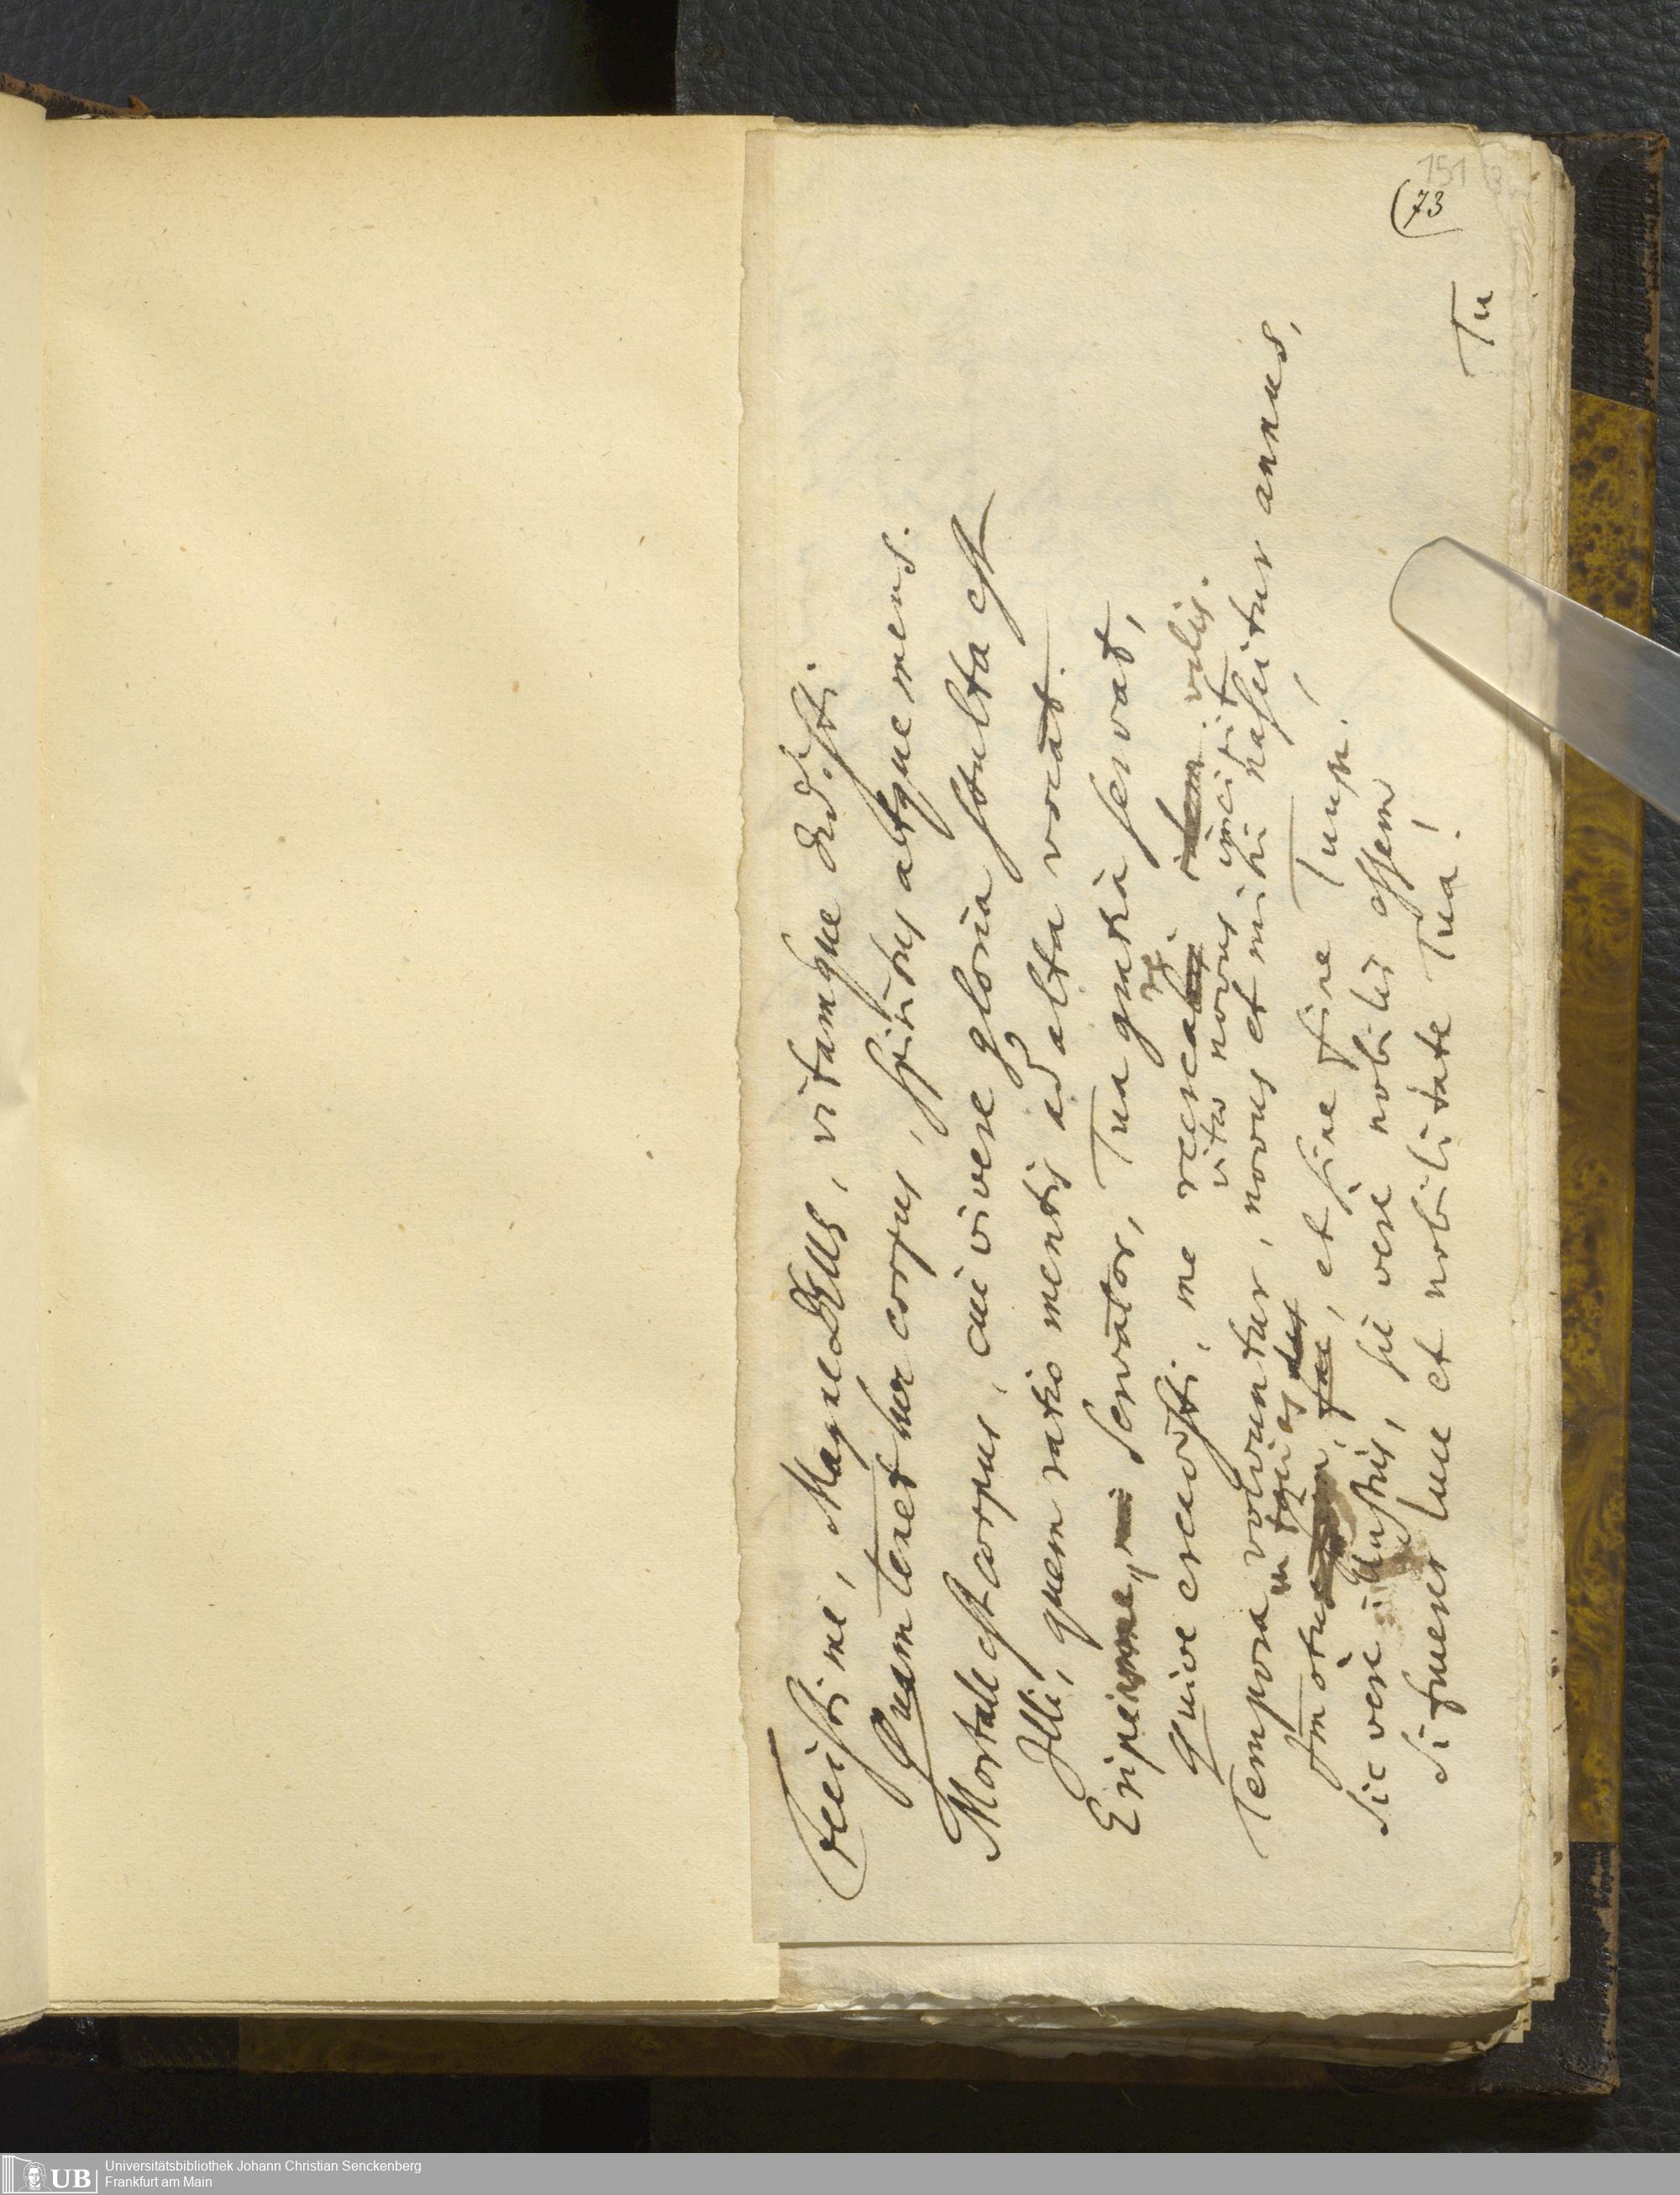 151
(73
Fecisti me, Magne DEUS, vitamque dedisti
Quam tenet hoc corpus, spiritus atque mens.
Mortale est corpus, cui vivere gloria stulta est
Illi, quem ratio mentis ad alta vocat.
Eripe Servator, Tua gratia servat,
re
Quive creasti, me recrea velis.
vita novus incipit
Tempora volvuntur, novus et mihi nascitur annus,
in qui es
Im otus, fac, et sine fine Tuus.
Sic vere illustris, sic vere nobilis essem
Si fuero luce et nobilitate Tua!
Tu
UB
Universitätsbibliothek Johann Christian Senckenberg
Frankfurt am Main